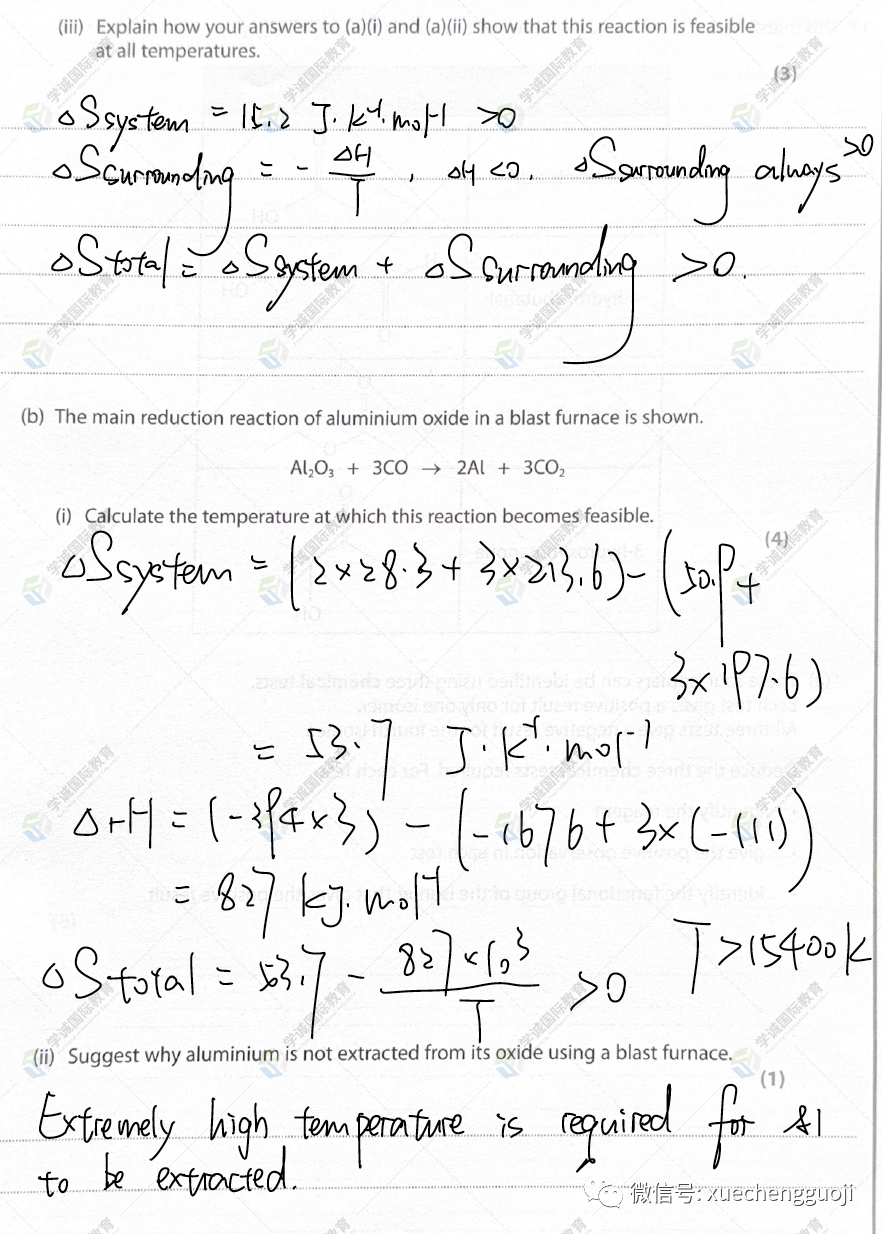 (iii) Explain how your answers to (a)(i) and (a)(ii) show that this reaction is feasible
at all temperatures.
(3)
△Ssystem = 15.2 J·K⁻¹·mol⁻¹ >0
△Ssurrounding = - △H/T , △H <0. △Ssurrounding always >0
△Stotal = △Ssystem + △Ssurrounding >0.
(b) The main reduction reaction of aluminium oxide in a blast furnace is shown.
Al₂O₃ + 3CO → 2Al + 3CO₂
(i) Calculate the temperature at which this reaction becomes feasible.
(4)
△Ssystem = (2×28.3 + 3×213.6) - (50.9 +
3×197.6)
= 53.7 J·K⁻¹·mol⁻¹
△rH = (-394×3) - (-1676 + 3×(-111))
= 827 kJ·mol⁻¹
△Stotal = 53.7 - 827×10³/T >0 T >15400K
(ii) Suggest why aluminium is not extracted from its oxide using a blast furnace.
(1)
Extremely high temperature is required for Al
to be extracted.
微信号: xuechengguoji
学诚国际教育